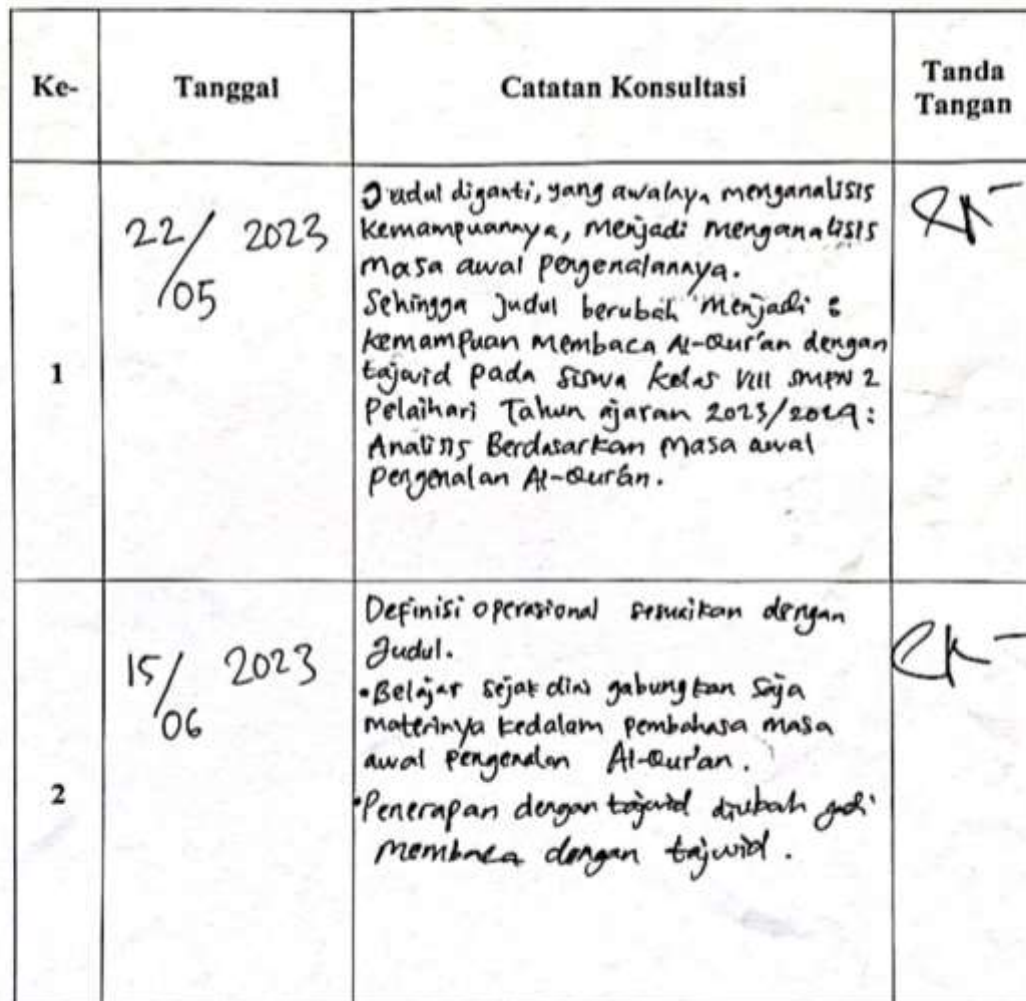 Ke-
Tanggal
Catatan Konsultasi
Tanda
Tangan
1
22/05 2023
Judul diganti, yang awalnya menganalisis
kemampuannya, menjadi menganalisis
masa awal pengenalannya.
Sehingga judul berubah menjadi :
kemampuan membaca Al-Qur'an dengan
tajwid pada siswa kelas VIII SMPN 2
Pelaihari Tahun ajaran 2023/2024 :
Analisis Berdasarkan masa awal
pengenalan Al-Qur'an.
2
15/06 2023
Definisi operasional sesuaikan dengan
Judul.
• Belajar sejak dini gabungkan saja
materinya kedalam pembahasa masa
awal pengenalan Al-Qur'an.
• Penerapan dengan tajwid dirubah jadi
membaca dengan tajwid.